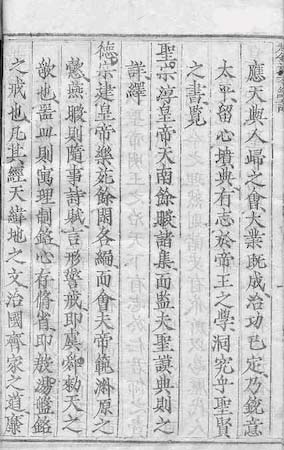 應天與人歸之會大業既成治功已定乃銳意
太平留心墳典有志於帝王之學洞究乎聖賢
之書覽
聖宗淳皇帝天南餘暇諸集而監夫聖謨典則之
詳繹
德宗建皇帝樂苑餘閑各編而會夫帝範淵原之
懿燕暇則隨事詩賦言形警戒即虞勑天之
歌也器皿則寓理制銘心存脩省即殷湯盤銘
之戒也凡其經天緯地之文治國齊家之道靡